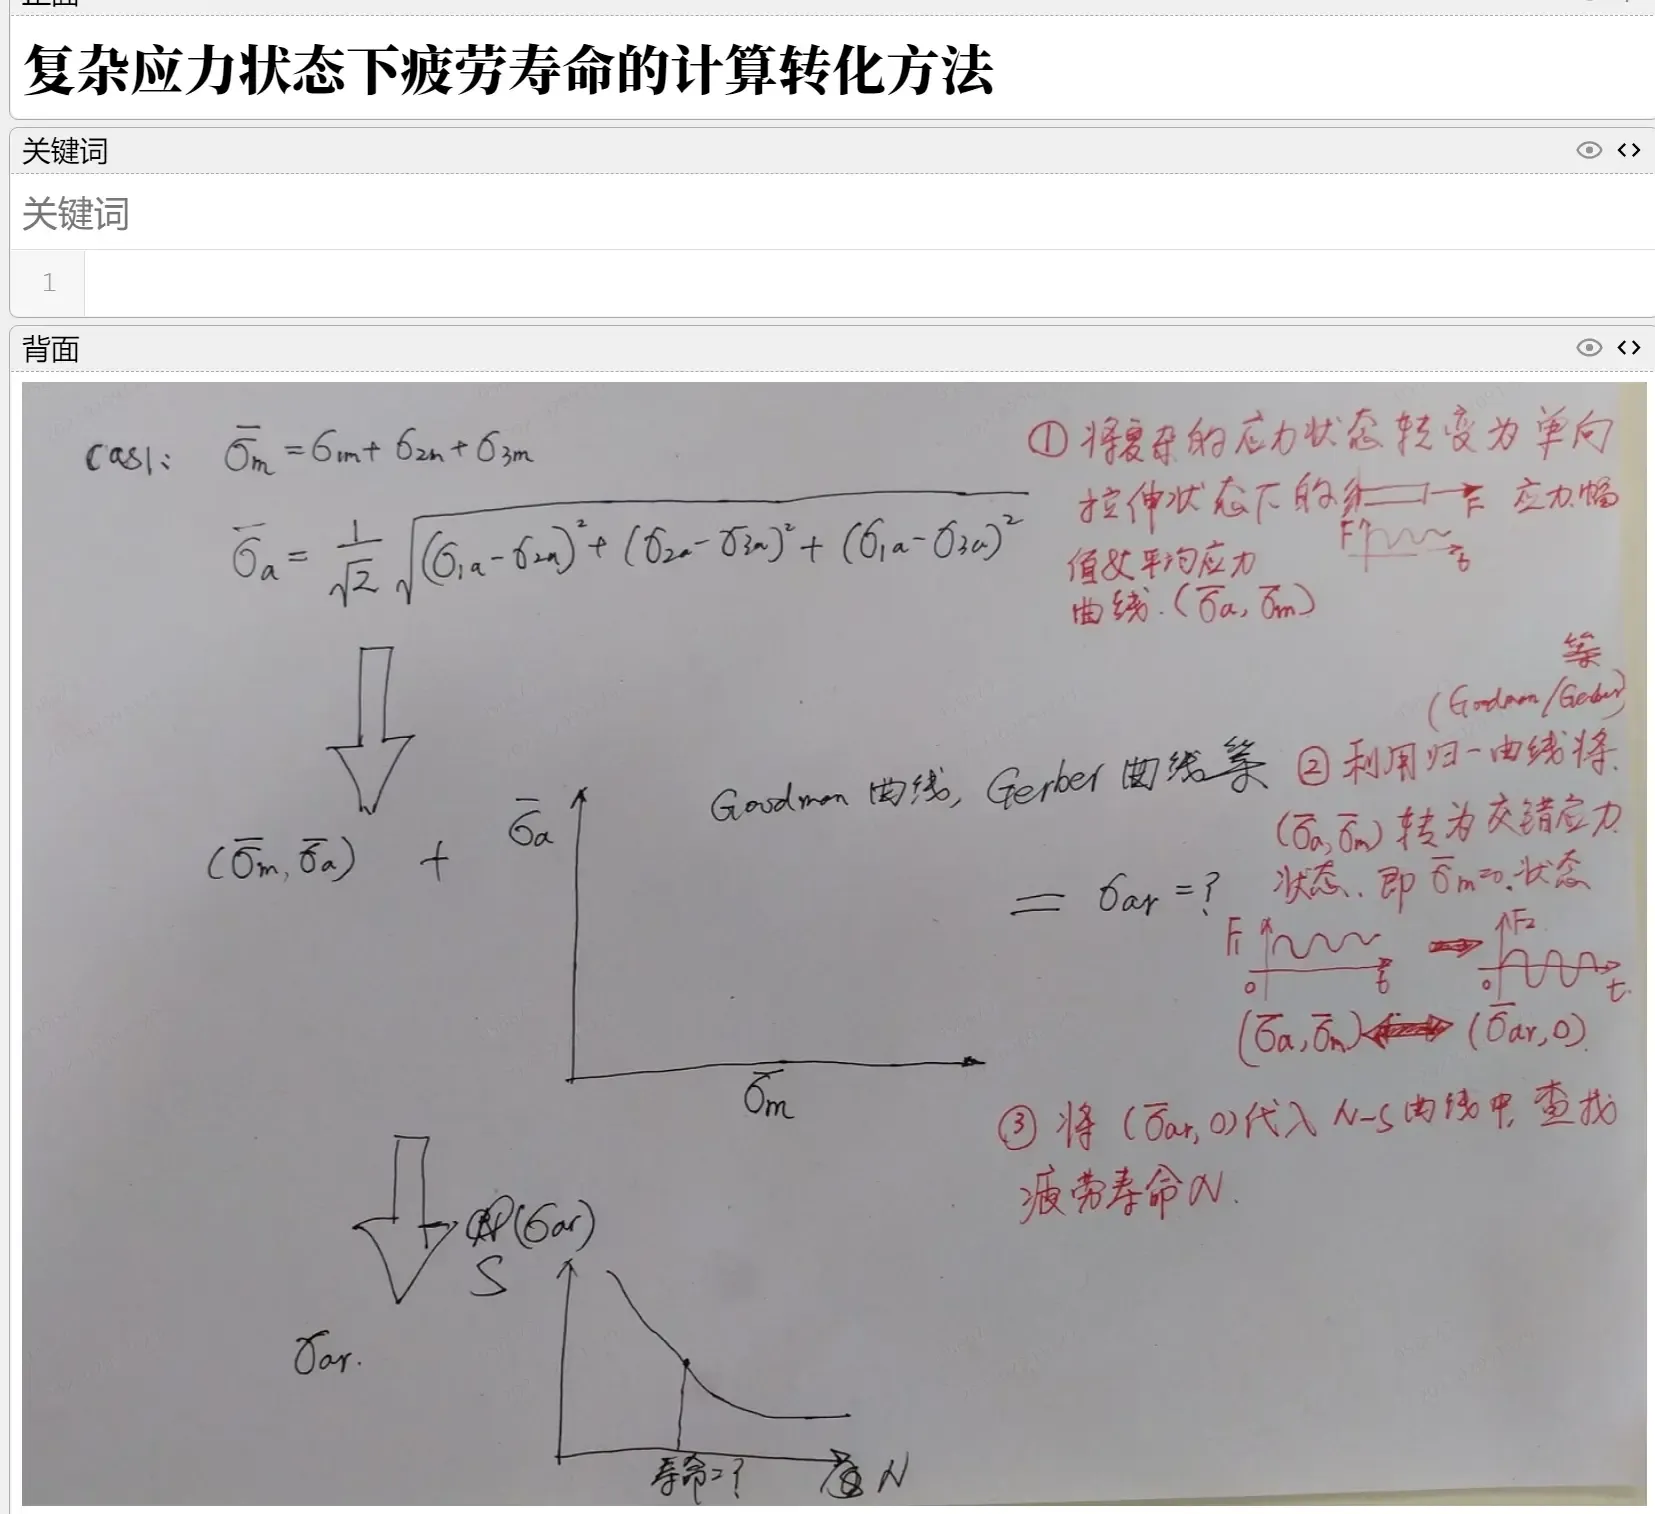 正面
复杂应力状态下疲劳寿命的计算转化方法
关键词
关键词
1
背面
cas1: σ̄m = σ1m + σ2m + σ3m
σ̄a = 1/√2 √((σ1a-σ2a)² + (σ2a-σ3a)² + (σ1a-σ3a)²)
① 将复杂的应力状态转变为单向
拉伸状态下的 F 应力幅
F t
值及平均应力
曲线.(σ̄a, σ̄m)
(σ̄m, σ̄a) +
σ̄a
σ̄m
Goodman 曲线, Gerber 曲线等
= σar = ?
等
(Goodman/Gerber)
② 利用归一曲线将
(σ̄a, σ̄m) 转为交错应力
状态. 即 σ̄m=0.状态
F1 0 t F2 0 t.
(σ̄a, σ̄m) (σ̄ar, 0)
③ 将 (σ̄ar, 0)代入 N-S曲线中, 查找
疲劳寿命N.
(σar)
S
σar.
寿命=?
N